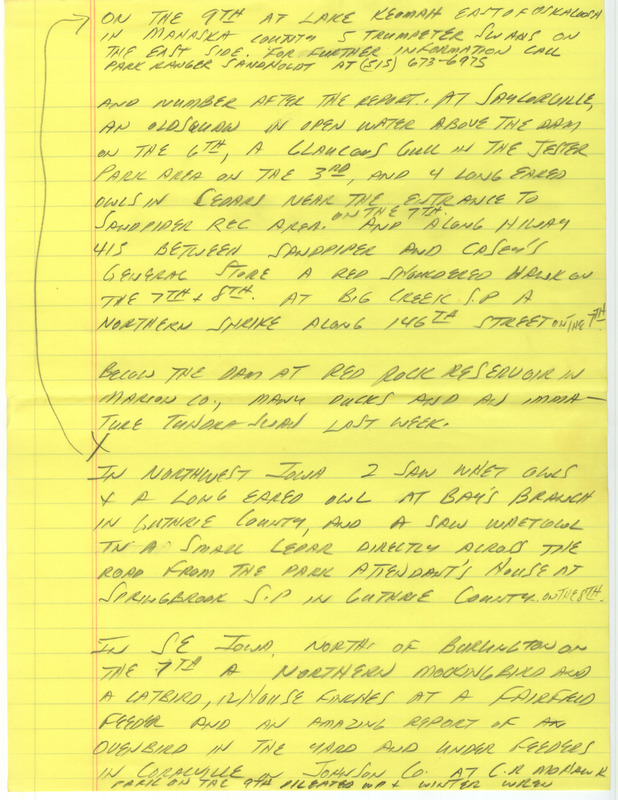 ON THE 9TH AT LAKE KEOMAH EAST OF OSKALOOSA
IN MAHASKA COUNTY 5 TRUMPETER SWANS ON
THE EAST SIDE. FOR FURTHER INFORMATION CALL
PARK RANGER SANDHOLDT AT (515) 673-6975
AND NUMBER AFTER THE REPORT. AT SAYLORVILLE,
AN OLDSQUAW IN OPEN WATER ABOVE THE DAM
ON THE 6TH, A GLAUCOUS GULL IN THE JESTER
PARK AREA ON THE 3RD, AND 4 LONG EARED
OWLS IN CEDARS NEAR THE ENTRANCE TO
SANDPIPER REC AREA. ON THE 7TH. AND ALONG HIWAY
415 BETWEEN SANDPIPER AND CASEY'S
GENERAL STORE A RED SHOULDERED HAWK ON
THE 7TH + 8TH. AT BIG CREEK S.P A
NORTHERN SHRIKE ALONG 146TH STREET ON THE 7TH.
BELOW THE DAM AT RED ROCK RESERVOIR IN
MARION CO., MANY DUCKS AND AN IMMA-
TURE TUNDRA SWAN LAST WEEK.
X
IN NORTHWEST IOWA 2 SAW WHET OWLS
+ A LONG EARED OWL AT BAY'S BRANCH
IN GUTHRIE COUNTY, AND A SAW WHET OWL
IN A SMALL CEDAR DIRECTLY ACROSS THE
ROAD FROM THE PARK ATTENDANT'S HOUSE AT
SPRINGBROOK S.P IN GUTHRIE COUNTY. ON THE 8TH.
IN SE IOWA, NORTH OF BURLINGTON ON
THE 7TH A NORTHERN MOCKINGBIRD AND
A CATBIRD, 12 HOUSE FINCHES AT A FAIRFIELD
FEEDER AND AN AMAZING REPORT OF AN
OVENBIRD IN THE YARD AND UNDER FEEDERS
IN CORALVILLE IN JOHNSON CO. AT C.R MOHAWK
PARK ON THE 9TH PILEATED WP + WINTER WREN